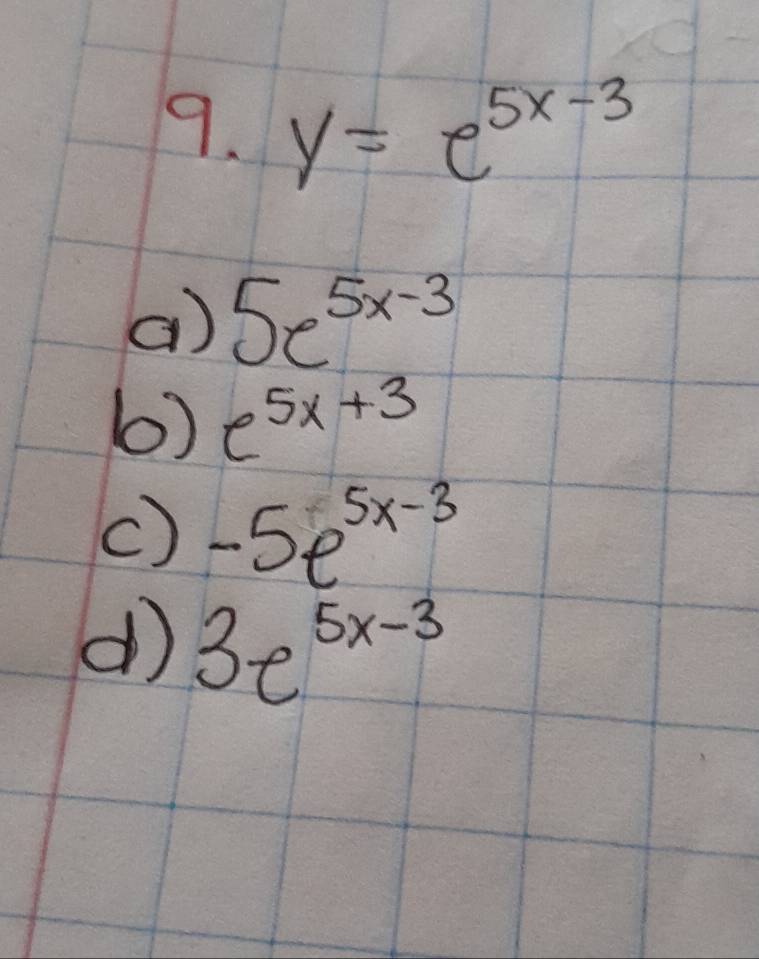 9. y = e^{5x-3}
a) 5e^{5x-3}
b) e^{5x+3}
c) -5e^{5x-3}
d) 3e^{5x-3}